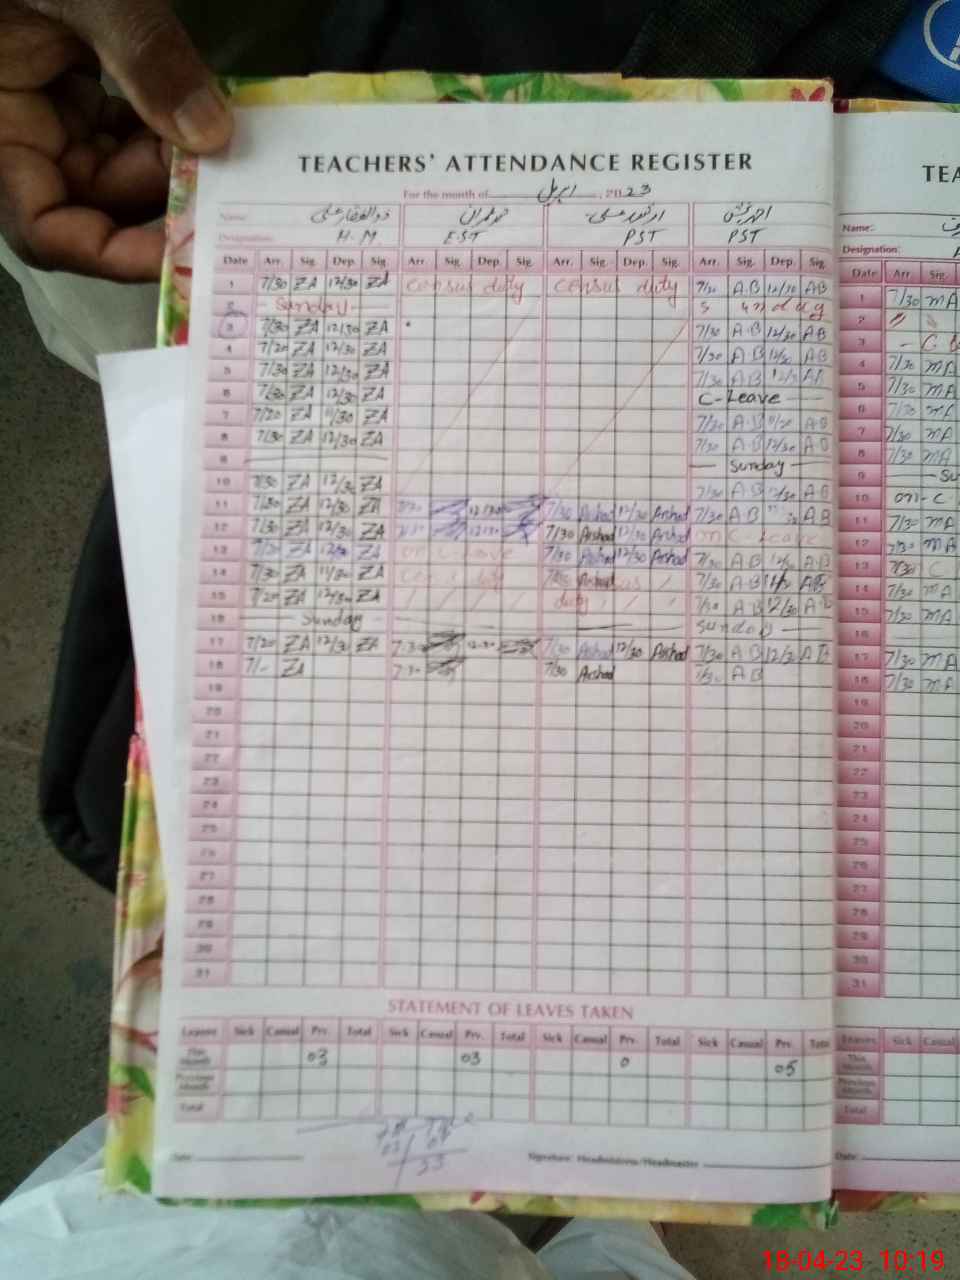 TEACHERS' ATTENDANCE REGISTER
For the month of اپریل, 2023
Name: ذوالفقار علی محمد عمران ارشد علی احمد بخش
Designation: H.M. EST PST PST
Date Arr. Sig. Dep. Sig. Arr. Sig. Dep. Sig. Arr. Sig. Dep. Sig. Arr. Sig. Dep. Sig.
1 7/30 ZA 12/30 ZA census duty census duty A B AB
2 Sunday S u n d a y
3 7/30 ZA 12/30 ZA 7/30 A B 12/30 AB
4 7/30 ZA 12/30 ZA 7/30 A B AB
5 7/30 ZA 12/30 ZA 7/30 AB
6 7/30 ZA 12/30 ZA C-Leave
7 ZA 11/30 ZA A-B
8 7/30 ZA 12/30 ZA 7/30 A-B 12/30
9 Sunday
10 7/30 ZA 12/30 ZA 7/30 AB 12/30
11 7/30 ZA 12/30 ZA 12/30 7/30 Arshad 12/30 Arshad 7/30 A B AB
12 7/30 ZA 12/30 ZA 7/30 Arshad 12/30 Arshad on C-Leave
13 ZA ZA on C-Leave 7/30 Arshad 12/30 Arshad 7/30 A B AB
14 7/30 ZA 11/30 ZA Arshad 7/30 A B AB
15 ZA 12/30 ZA duty 7/30 AB 12/30
16 Sunday Sunday
17 7/30 ZA 12/30 ZA 7/30 Arshad 12/30 Arshad 7/30 A B 12/30 AB
18 7/- ZA 7/30 7/30 Arshad 7/30 AB
19
20
21
22
23
24
25
26
27
28
29
30
31
STATEMENT OF LEAVES TAKEN
Leaves Sick Casual Prv. Total Sick Casual Prv. Total Sick Casual Prv. Total Sick Casual Prv. Total
This Month 03 03 0 05
Previous Month
Total
33
Date: Signature: Headmistress/Headmaster
TEA
Name:
Designation:
Date Arr. Sig.
1 7/30 MA
2
3
4 7/30 MA
5 7/30 MA
6 7/30 MA
7 7/30 MA
8 7/30 MA
9
10 on-C
11 7/30 MA
12 7/30 MA
13 7/30 C
14 7/30 MA
15 7/30 MA
16
17 7/30 MA
18 7/30 MA
19
20
21
22
23
24
25
26
27
28
29
30
31
Leaves Sick Casual
This Month
Previous Month
Total
Date:
18-04-23 10:19